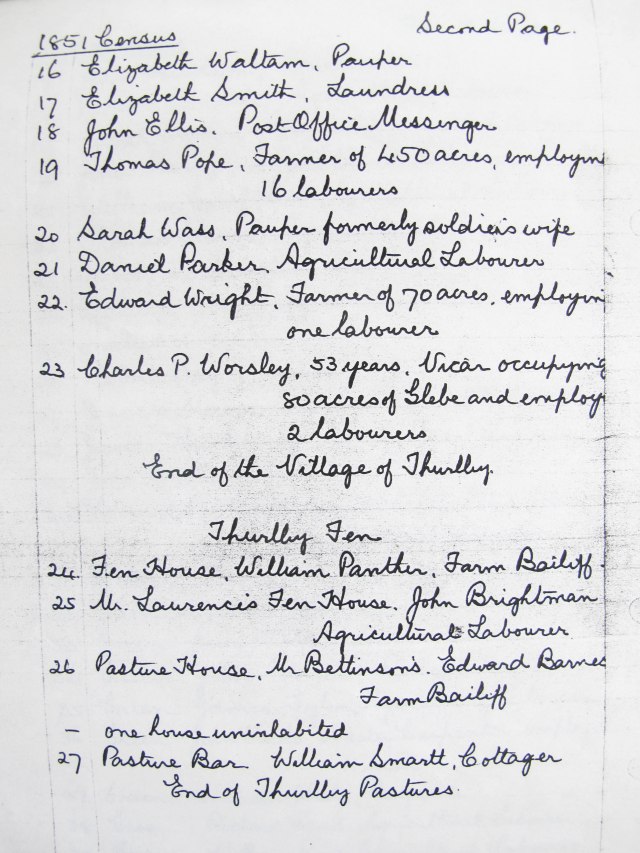 1851 Census Second Page.
16 Elizabeth Waltam, Pauper
17 Elizabeth Smith, Laundress
18 John Ellis. Post Office Messenger
19 Thomas Pope, Farmer of 450 acres, employin
16 labourers
20 Sarah Wass, Pauper formerly soldier's wife
21 Daniel Parker, Agricultural Labourer
22. Edward Wright, Farmer of 70 acres, employin
one labourer
23 Charles P. Worsley, 53 years, Vicar occupying
80 acres of Glebe and employ
2 labourers
End of the Village of Thurlby.
Thurlby Fen
24 Fen House, William Panther, Farm Bailiff.
25 Mr. Laurence's Fen House. John Brightman
Agricultural Labourer
26 Pasture House, Mr Bettinson's. Edward Barnes
Farm Bailiff
— one house uninhabited
27 Pasture Bar William Smartt, Cottager
End of Thurlby Pastures.